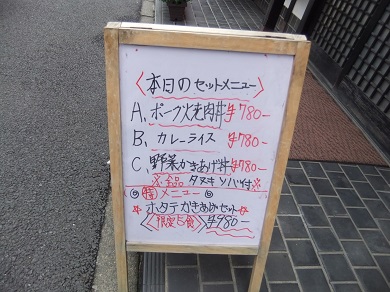 〈本日のセットメニュー〉
A、ポーク焼肉丼 ¥780-
B、カレーライス ¥780-
C、野菜かきあげ丼 ¥780-
※全品 タヌキソバ付※
◎特メニュー◎
☆ホタテかきあげセット☆
《限定5食》 ¥980-